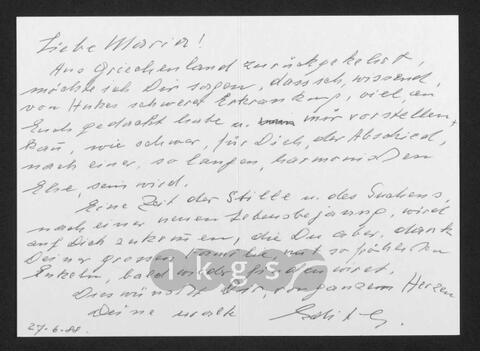 Liebe Maria!
Aus Griechenland zurückgekehrt,
möchte ich Dir sagen, dass ich, wissend,
von schwerer Erkrankung, viel, an
Euch gedacht habe u. mir vorstellen
kann, wie schwer, für Dich, der Abschied,
nach einer, so langen, harmonischen
Ehe, sein wird.
Eine Zeit der Stille u. des Suchens,
nach einer neuen Lebensbejahung, wird
auf Dich zukommen, die Du aber, dank
Deiner grossen Familie mit so
Enkeln, bald wieder finden wirst.
Dies wünscht Dir, von ganzem Herzen
Deine
27.6.88
ikgs